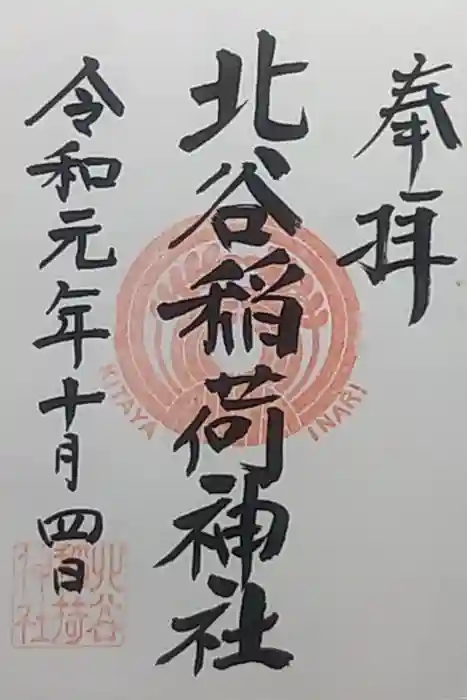 奉拝
北谷稲荷神社
令和元年十月四日
KITAYA INARI
北谷
稲荷
神社